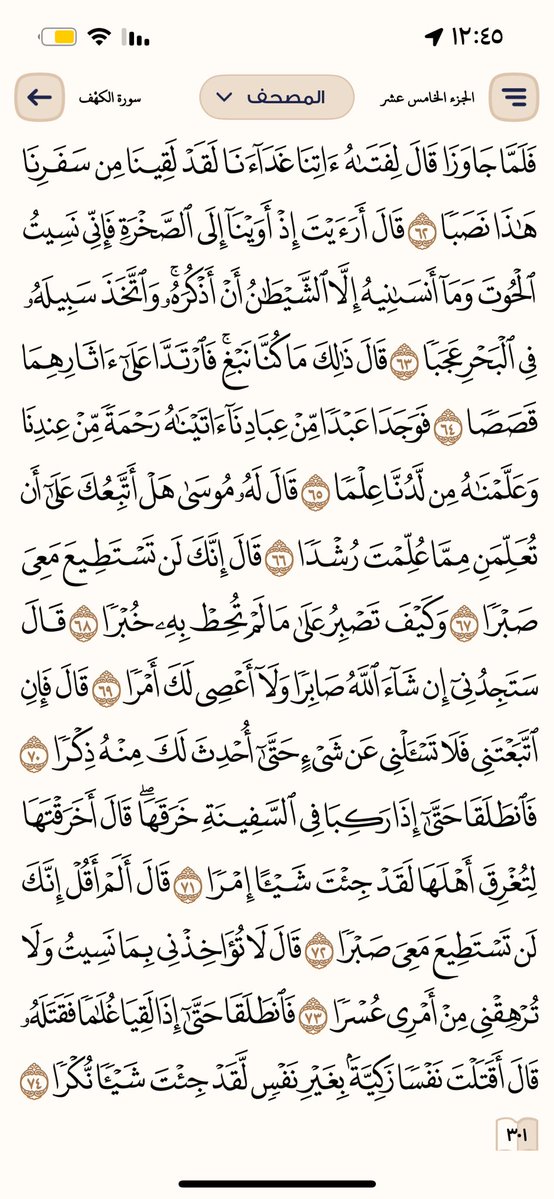 ١٢:٤٥
الجزء الخامس عشر
المصحف
سورة الكهف
فَلَمَّا جَاوَزَا قَالَ لِفَتَىٰهُ ءَاتِنَا غَدَآءَنَا لَقَدۡ لَقِينَا مِن سَفَرِنَا
هَٰذَا نَصَبٗا ٦٢ قَالَ أَرَءَيۡتَ إِذۡ أَوَيۡنَآ إِلَى ٱلصَّخۡرَةِ فَإِنِّي نَسِيتُ
ٱلۡحُوتَ وَمَآ أَنسَىٰنِيهُ إِلَّا ٱلشَّيۡطَٰنُ أَنۡ أَذۡكُرَهُۥۚ وَٱتَّخَذَ سَبِيلَهُۥ
فِي ٱلۡبَحۡرِ عَجَبٗا ٦٣ قَالَ ذَٰلِكَ مَا كُنَّا نَبۡغِۚ فَٱرۡتَدَّا عَلَىٰٓ ءَاثَارِهِمَا
قَصَصٗا ٦٤ فَوَجَدَا عَبۡدٗا مِّنۡ عِبَادِنَآ ءَاتَيۡنَٰهُ رَحۡمَةٗ مِّنۡ عِندِنَا
وَعَلَّمۡنَٰهُ مِن لَّدُنَّا عِلۡمٗا ٦٥ قَالَ لَهُۥ مُوسَىٰ هَلۡ أَتَّبِعُكَ عَلَىٰٓ أَن
تُعَلِّمَنِ مِمَّا عُلِّمۡتَ رُشۡدٗا ٦٦ قَالَ إِنَّكَ لَن تَسۡتَطِيعَ مَعِيَ
صَبۡرٗا ٦٧ وَكَيۡفَ تَصۡبِرُ عَلَىٰ مَا لَمۡ تُحِطۡ بِهِۦ خُبۡرٗا ٦٨ قَالَ
سَتَجِدُنِيٓ إِن شَآءَ ٱللَّهُ صَابِرٗا وَلَآ أَعۡصِي لَكَ أَمۡرٗا ٦٩ قَالَ فَإِنِ
ٱتَّبَعۡتَنِي فَلَا تَسۡـَٔلۡنِي عَن شَيۡءٍ حَتَّىٰٓ أُحۡدِثَ لَكَ مِنۡهُ ذِكۡرٗا ٧٠
فَٱنطَلَقَا حَتَّىٰٓ إِذَا رَكِبَا فِي ٱلسَّفِينَةِ خَرَقَهَاۖ قَالَ أَخَرَقۡتَهَا
لِتُغۡرِقَ أَهۡلَهَا لَقَدۡ جِئۡتَ شَيۡـًٔا إِمۡرٗا ٧١ قَالَ أَلَمۡ أَقُلۡ إِنَّكَ
لَن تَسۡتَطِيعَ مَعِيَ صَبۡرٗا ٧٢ قَالَ لَا تُؤَاخِذۡنِي بِمَا نَسِيتُ وَلَا
تُرۡهِقۡنِي مِنۡ أَمۡرِي عُسۡرٗا ٧٣ فَٱنطَلَقَا حَتَّىٰٓ إِذَا لَقِيَا غُلَٰمٗا فَقَتَلَهُۥ
قَالَ أَقَتَلۡتَ نَفۡسٗا زَكِيَّةَۢ بِغَيۡرِ نَفۡسٖ لَّقَدۡ جِئۡتَ شَيۡـٔٗا نُّكۡرٗا ٧٤
٣٠١